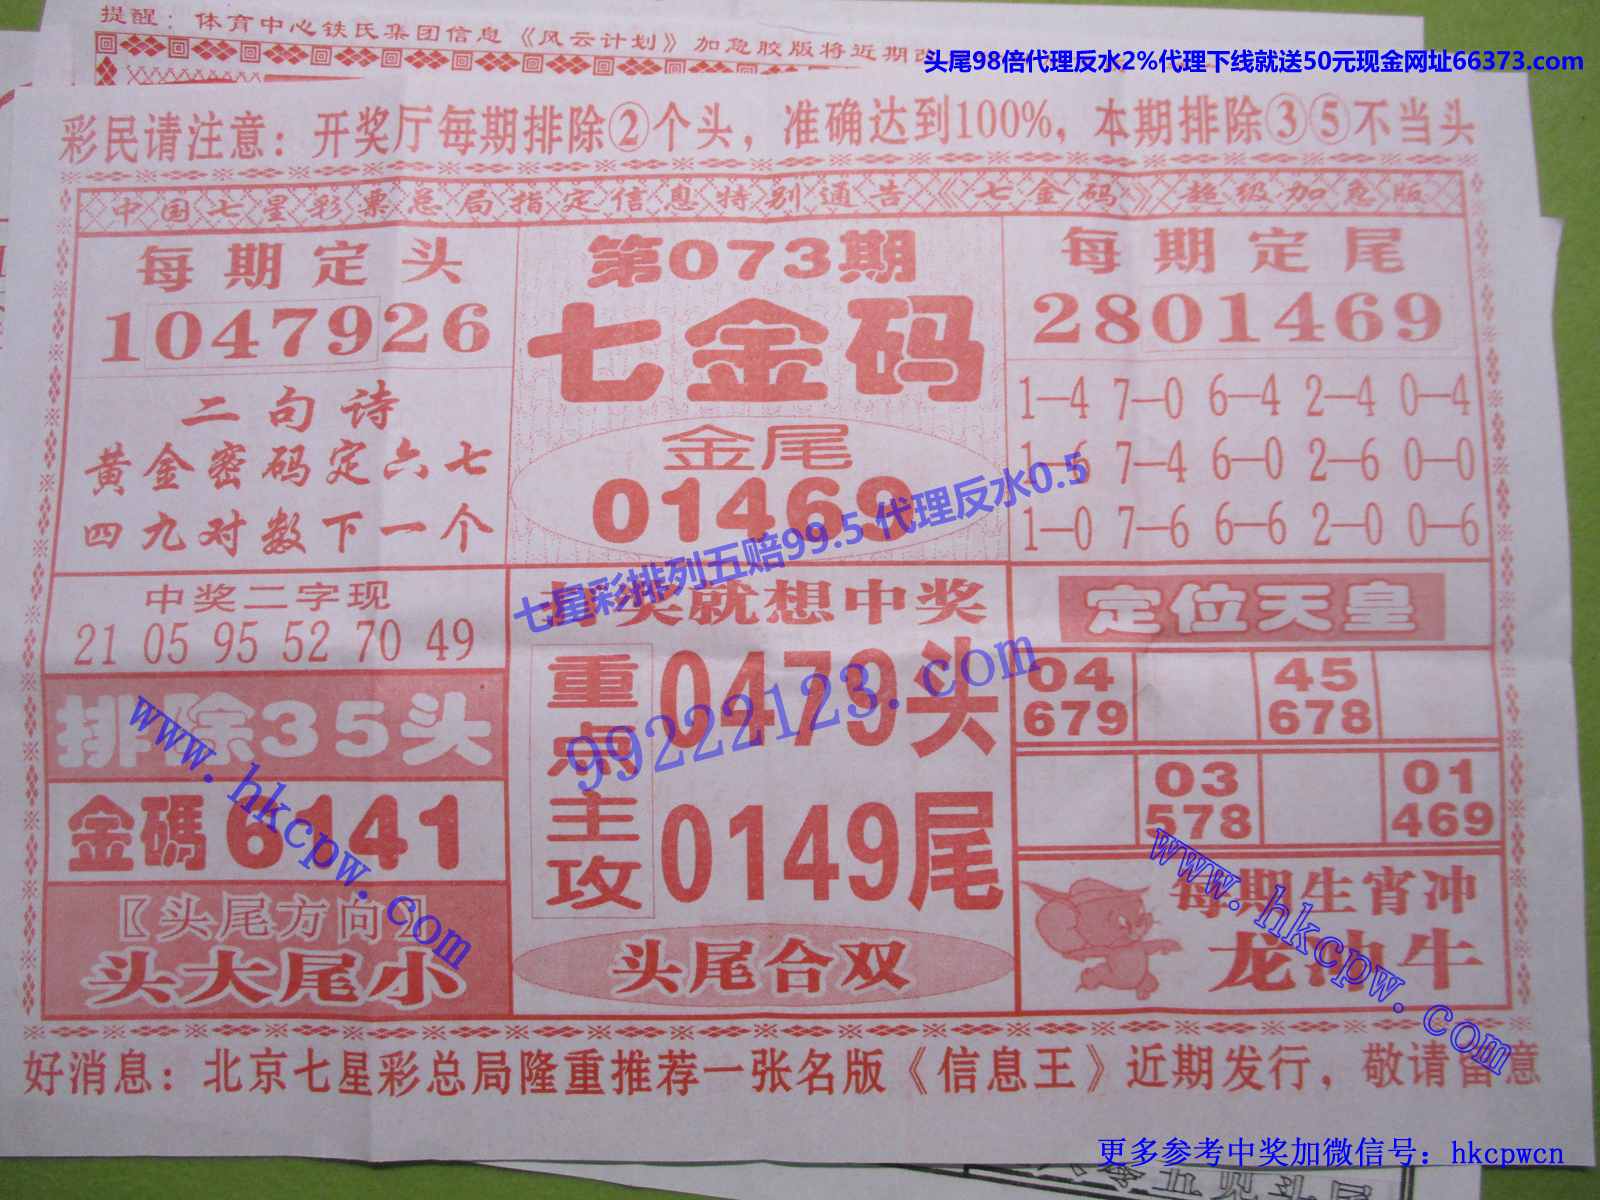 提醒：体育中心铁氏集团信息《风云计划》加急胶版将近期改
头尾98倍代理反水2%代理下线就送50元现金网址66373.com
彩民请注意：开奖厅每期排除②个头，准确达到100%，本期排除③⑤不当头
中国七星彩票总局指定信息特别通告《七金码》超级加急版
每期定头
1047926
第073期
七金码
每期定尾
2801469
二句诗
黄金密码定六七
四九对数下一个
金尾
01469
1—4 7—0 6—4 2—4 0—4
1—6 7—4 6—0 2—6 0—0
1—0 7—6 6—6 2—0 0—6
七星彩排列五赔99.5 代理反水0.5
中奖二字现
21 05 95 52 70 49
排除35头
金碼 6141
〖头尾方向〗
头大尾小
奖就想中奖
重点主攻
0479头
0149尾
头尾合双
99222123.com
定位天皇
04
679
45
678
03
578
01
469
每期生宵冲
龙冲牛
www.hkcpw.com
www.hkcpw.com
好消息：北京七星彩总局隆重推荐一张名版《信息王》近期发行，敬请留意
更多参考中奖加微信号：hkcpwcn